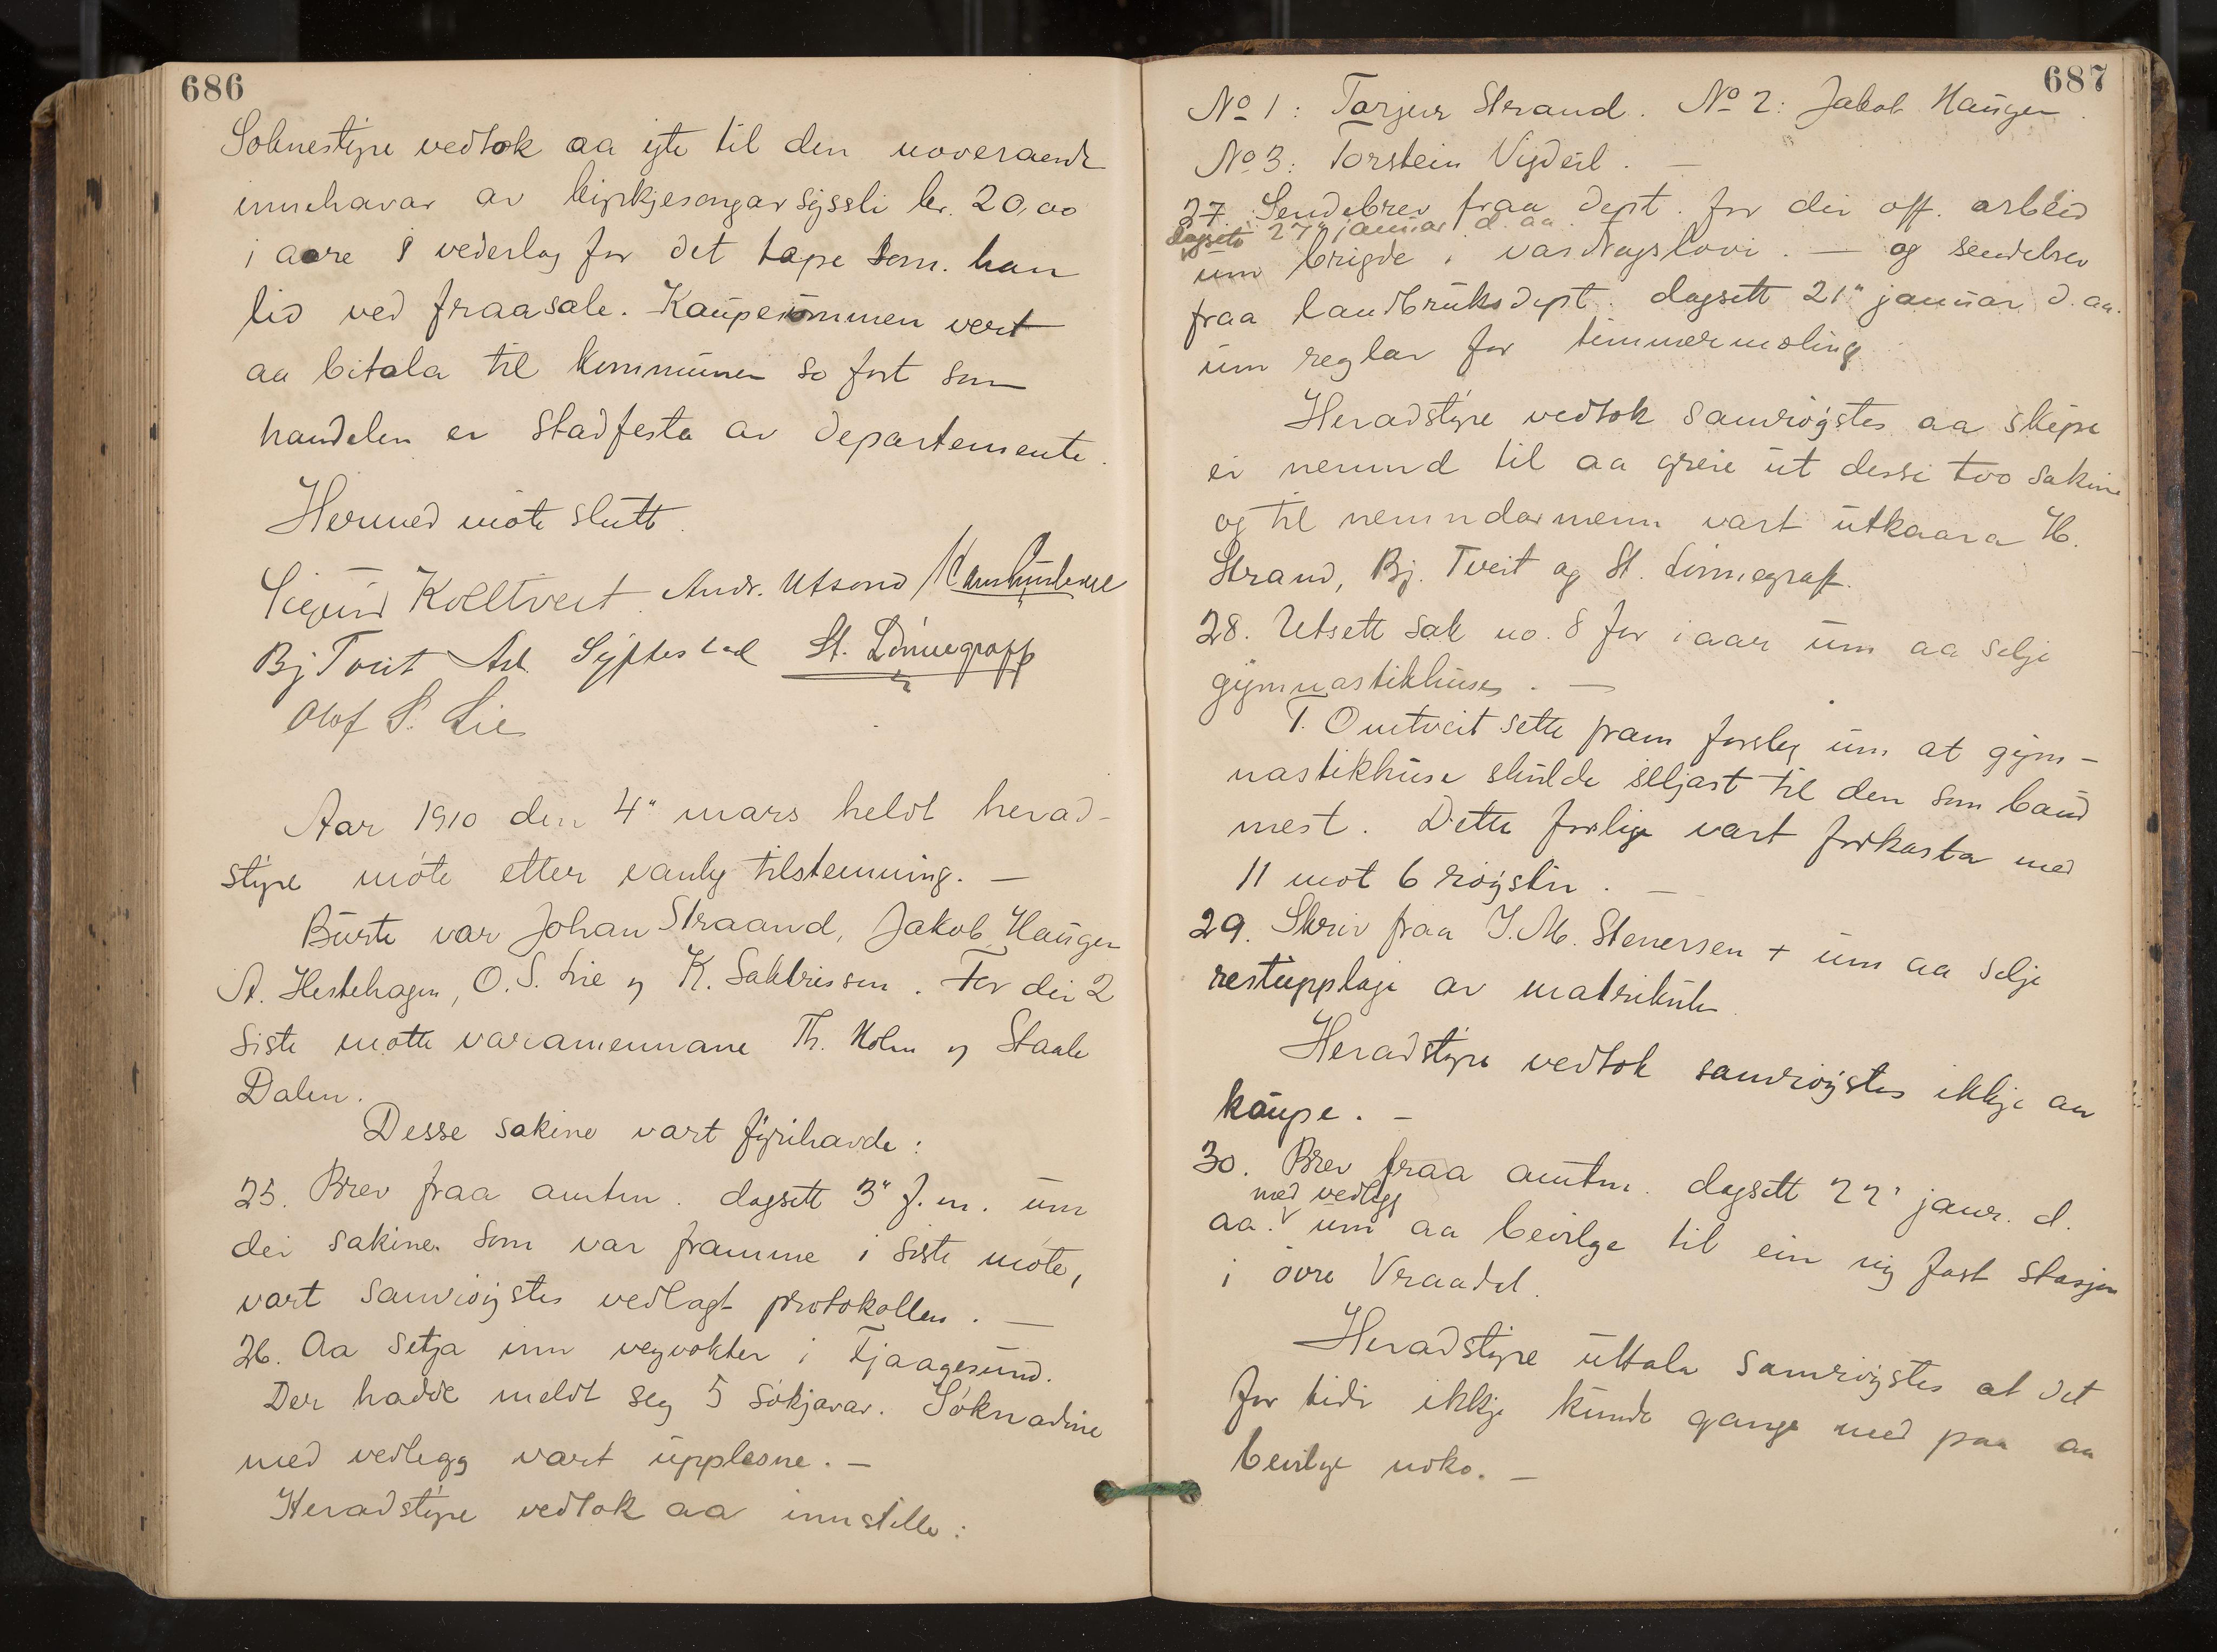 686
Soknestyre vedtok aa yte til den noverande
innehavar av kyrkjesongarsyssli kr. 20,00
i aare i vederlag for det tape som han
lid ved fraasale. Kaupesummen vert
aa bitala til kommunen so fort som
handelen er stadfesta av departemente.
Hermed møte slutt.
Sigurd Kolltveit. Andr. Utsond
Bj Tveit Ad. Syftestad St. Lønnegraff
Olof S. Lie
Aar 1910 den 4" mars heldt herad-
styre møte etter vanleg tilstemning. —
Burte var Johan Straand, Jakob Haugen
A. Hestehagen, O. S. Lie og K. Sakkrissen. For dei 2
siste møtte varamennane Th. Holm og Staale
Dalen.
Desse sakine vart fyrihavde:
25. Brev fraa amtm. dagsett 3" f. m. um
dei sakine som var framme i siste møte,
vart samrøystes vedlagt protokollen. —
26. Aa setja inn vegvokter i Fjaagesund.
Der hadde meldt seg 5 søkjarar. Søknadine
med vedlegg vart upplesne. —
Heradstyre vedtok aa innstille:
687
No 1: Tarjer Strand. No 2: Jakob Haugen.
No 3: Torstein Vigdeil. —
27. Sendebrev fraa Dept. for dei off. arbeid
dagsett 27" januar d. aa.
um brigde i vasdragslovi. — og sendebrev
fraa landbruksdept. dagsett 21" januar d. aa.
um reglar for timmermæling
Heradstyre vedtok samrøystes aa skipe
ei nemnd til aa greie ut desse two sakine
og til nemndarmenn vart utkaara H.
Strand, Bj. Tveit og St. Lønnegraff.
28. Utsett sak no. 8 for iaar um aa selje
gymnastikhuset. —
T. Omtveit sette fram forslag um at gym-
nastikhuse skulde seljast til den som baud
mest. Dette forslage vart forkasta med
11 mot 6 røyster. —
29. Skriv fraa J. M. Stenersen + um aa selje
restupplage av matrikulen
Heradstyre vedtok samrøystes ikkje aa
kaupe. —
30. Brev fraa amtm. dagsett 22' janr. d.
med vedlegg
aa. um aa bevilge til ein ny fast stasjon
i øvre Vraadal.
Heradstyre uttala samrøystes at det
for tidi ikkje kunde gange med paa aa
bevilge noko. —